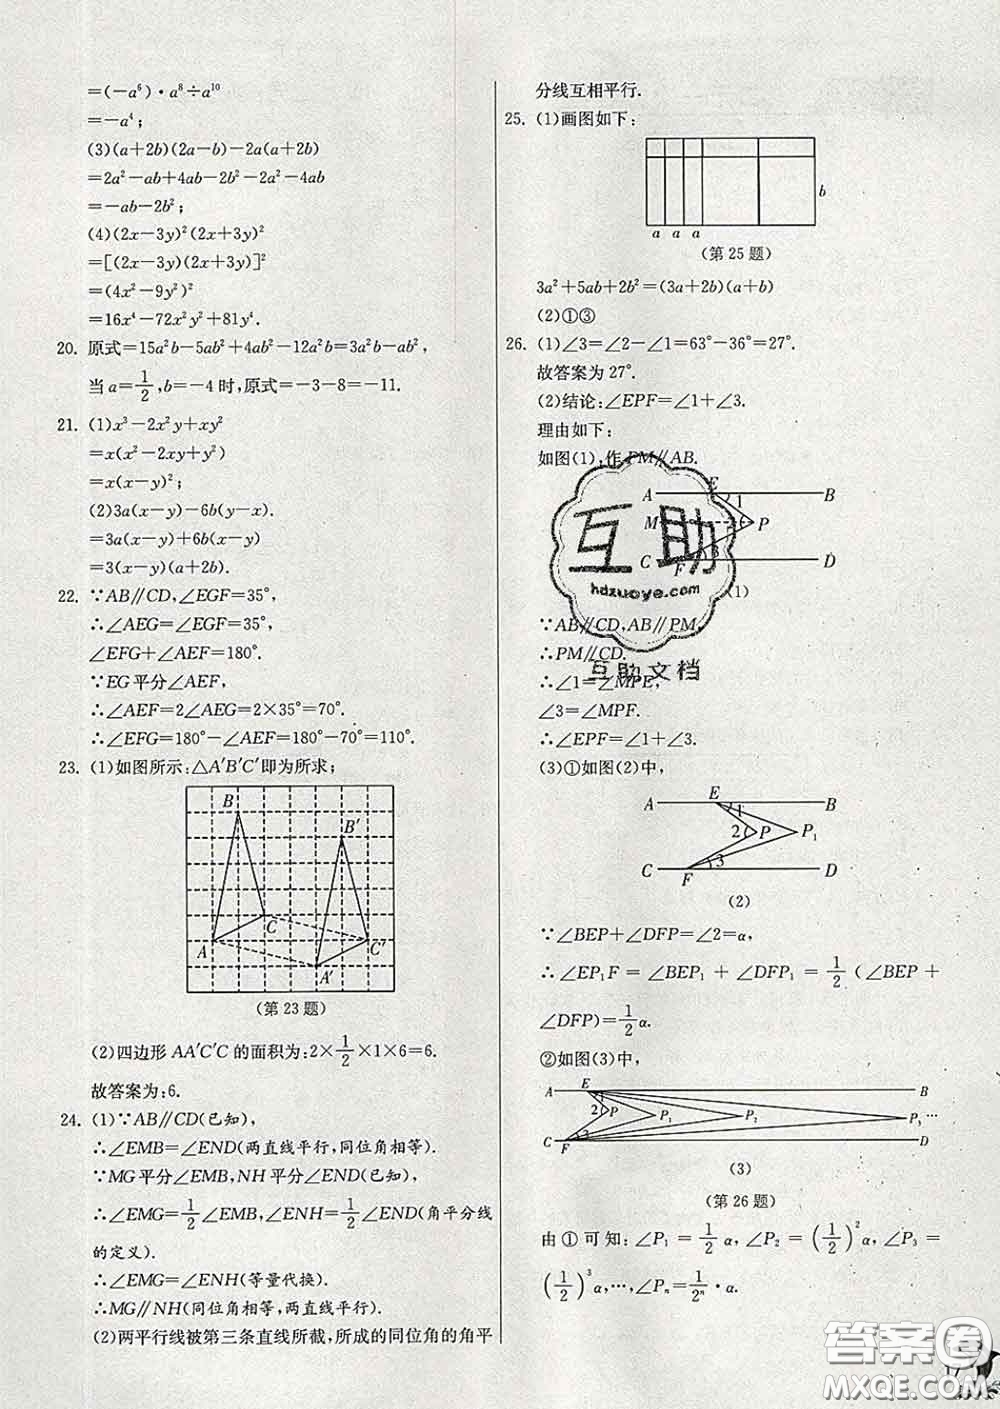 =(-a⁶)·a⁸÷a¹⁰
=-a⁴;
(3)(a+2b)(2a-b)-2a(a+2b)
=2a²-ab+4ab-2b²-2a²-4ab
=-ab-2b²;
(4)(2x-3y)²(2x+3y)²
=[(2x-3y)(2x+3y)]²
=(4x²-9y²)²
=16x⁴-72x²y²+81y⁴.
20. 原式=15a²b-5ab²+4ab²-12a²b=3a²b-ab²,
当a=1/2,b=-4时,原式=-3-8=-11.
21. (1)x³-2x²y+xy²
=x(x²-2xy+y²)
=x(x-y)²;
(2)3a(x-y)-6b(y-x).
=3a(x-y)+6b(x-y)
=3(x-y)(a+2b).
22. ∵AB∥CD,∠EGF=35°,
∴∠AEG=∠EGF=35°,
∠EFG+∠AEF=180°.
∵EG平分∠AEF,
∴∠AEF=2∠AEG=2×35°=70°.
∴∠EFG=180°-∠AEF=180°-70°=110°.
23. (1)如图所示:△A′B′C′即为所求;
B
B′
C
A
C′
A′
(第23题)
(2)四边形AA′C′C的面积为:2×1/2×1×6=6.
故答案为:6.
24. (1)∵AB∥CD(已知),
∴∠EMB=∠END(两直线平行,同位角相等).
∵MG平分∠EMB,NH平分∠END(已知),
∴∠EMG=1/2∠EMB,∠ENH=1/2∠END(角平分线
的定义).
∴∠EMG=∠ENH(等量代换).
∴MG∥NH(同位角相等,两直线平行).
(2)两平行线被第三条直线所截,所成的同位角的角平
分线互相平行.
25. (1)画图如下:
b
a a a
(第25题)
3a²+5ab+2b²=(3a+2b)(a+b)
(2)①③
26. (1)∠3=∠2-∠1=63°-36°=27°.
故答案为27°.
(2)结论:∠EPF=∠1+∠3.
理由如下:
如图(1),作PM∥AB.
A E B
1
M P
3
C F D
(1)
∵AB∥CD,AB∥PM,
∴PM∥CD.
∴∠1=∠MPE,
∠3=∠MPF.
∴∠EPF=∠1+∠3.
(3)①如图(2)中,
A E B
1
2 P P₁
3
C F D
(2)
∵∠BEP+∠DFP=∠2=α,
∴∠EP₁F=∠BEP₁+∠DFP₁=1/2(∠BEP+
∠DFP)=1/2α.
②如图(3)中,
A E B
2 P P₁ P₂ P₃ …
3
C F D
(3)
(第26题)
由①可知:∠P₁=1/2α,∠P₂=(1/2)²α,∠P₃=
(1/2)³α,…,∠Pₙ=1/2ⁿ·α.
互助
hdzuoye.com
互助文档
答案圈
MXQE.COM